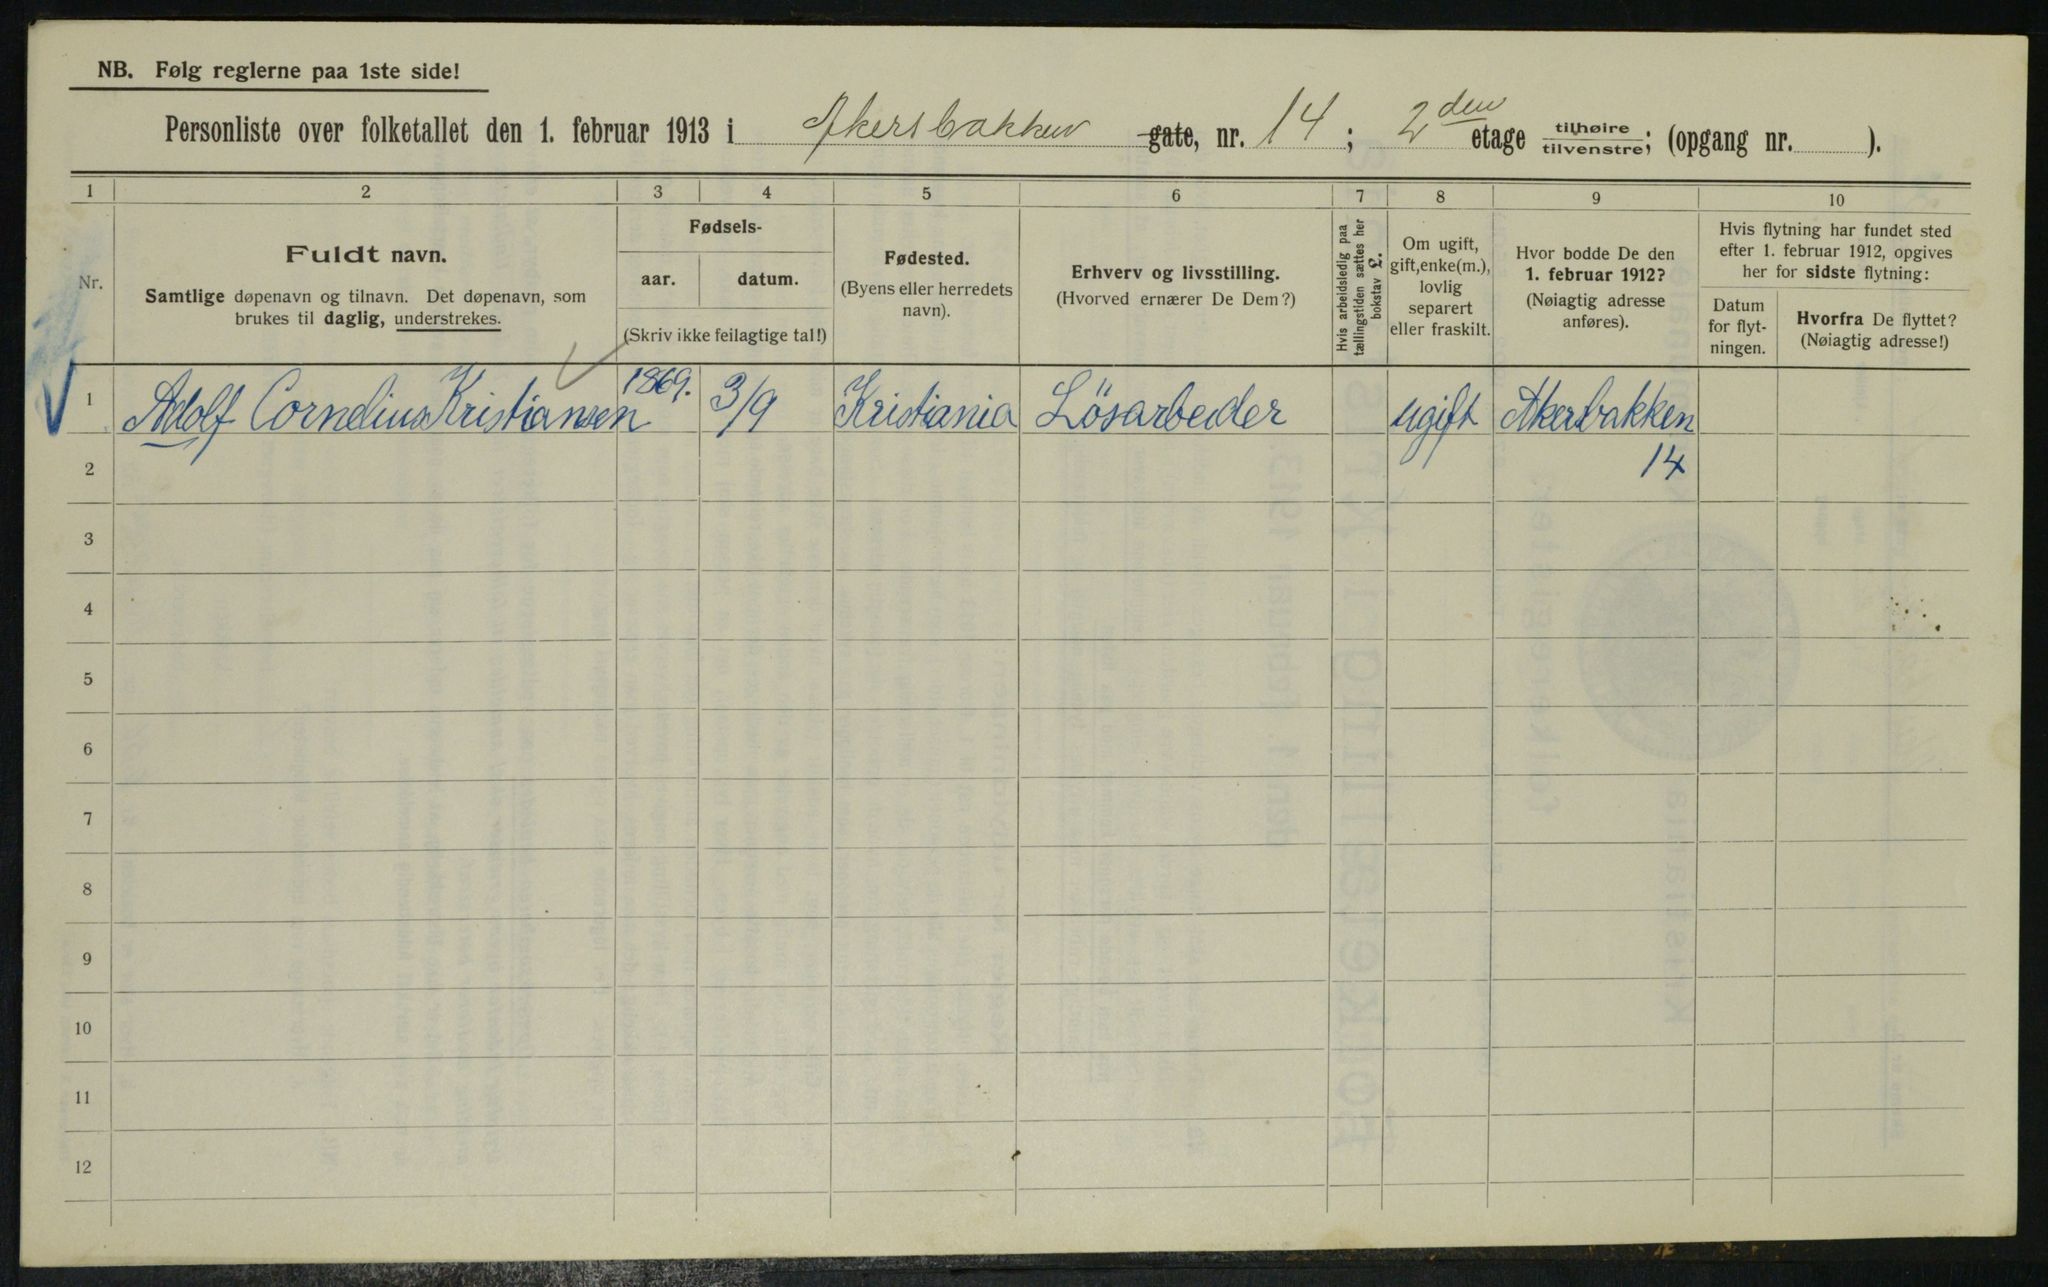 NB. Følg reglerne paa 1ste side!
Personliste over folketallet den 1. februar 1913 i Akersbakken gate, nr. 14; 2den etage tilhøire tilvenstre; (opgang nr. ).
1 2 3 4 5 6 7 8 9 10
Nr.
Fuldt navn.
Samtlige døpenavn og tilnavn. Det døpenavn, som
brukes til daglig, understrekes.
Fødsels-
aar. datum.
(Skriv ikke feilagtige tal!)
Fødested.
(Byens eller herredets
navn).
Erhverv og livsstilling.
(Hvorved ernærer De Dem?)
Hvis arbeidsledig paa
tællingstiden sættes her
bokstav L.
Om ugift,
gift, enke(m.),
lovlig
separert
eller fraskilt.
Hvor bodde De den
1. februar 1912?
(Nøiagtig adresse
anføres).
Hvis flytning har fundet sted
efter 1. februar 1912, opgives
her for sidste flytning:
Datum
for flyt-
ningen.
Hvorfra De flyttet?
(Nøiagtig adresse!)
1 Adolf Cornelius Kristiansen 1869. 3/9 Kristiania Lösarbeider ugift Akersbakken
2 14
3
4
5
6
7
8
9
10
11
12